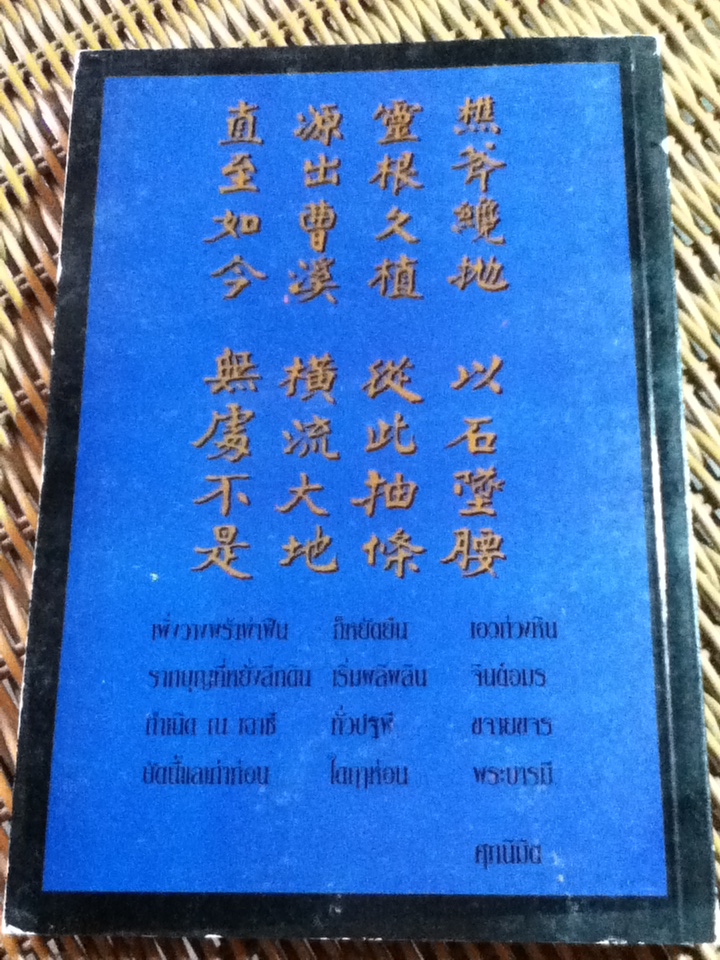 樵斧纔拋
以石墜腰
靈根久植
從此抽條
源出曹溪
橫流大地
直至如今
無處不是
เพิ่งวางพร้าผ่าฟืน ก็หยัดยืน เอวถ่วงหิน
รากบุญที่หยั่งลึกดิน เริ่มผลิพลิน จินต์อมร
กำเนิด ณ เฉาซี ทั่วปฐพี ขจายขจร
บัดนี้แลเก่าก่อน ใดฤๅห่อน พระบารมี
ศุภนิมิต